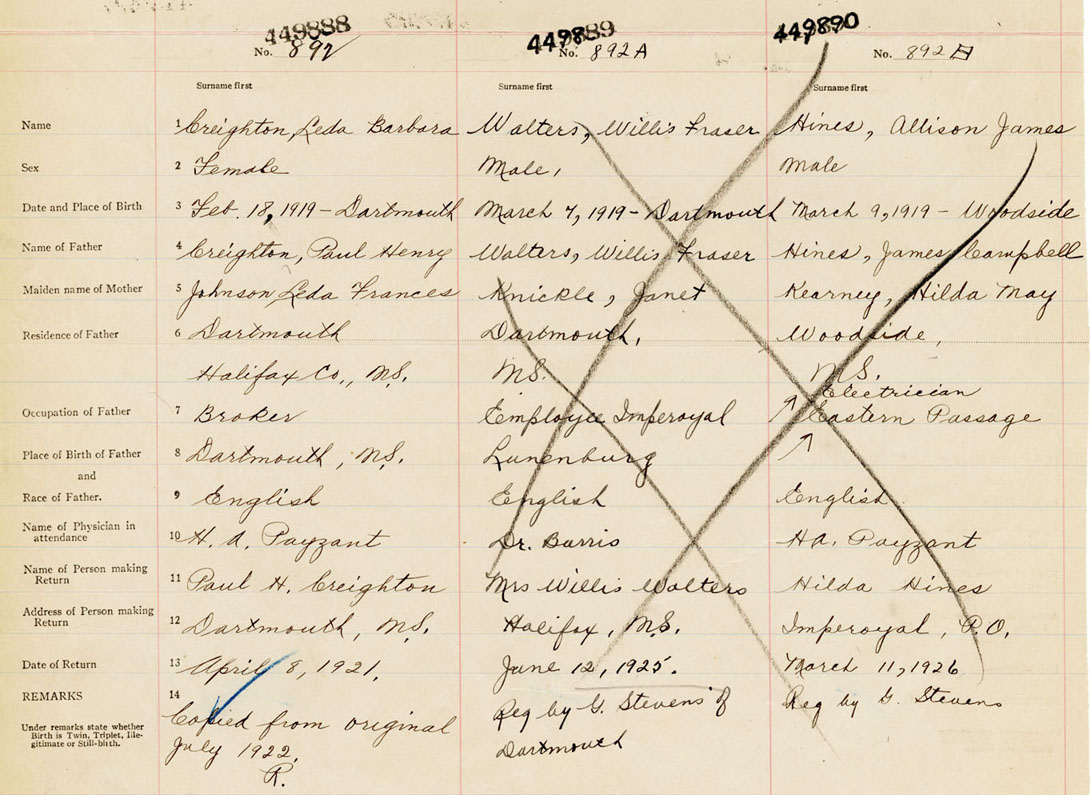 449888 449889 449890
No. 892 No. 892A No. 892B
Surname first Surname first Surname first
Name 1 Creighton, Leda Barbara Walters, Willis Fraser Hines, Allison James
Sex 2 Female Male, Male
Date and Place of Birth 3 Feb. 18, 1919 - Dartmouth March 7, 1919 - Dartmouth March 9, 1919 - Woodside
Name of Father 4 Creighton, Paul Henry Walters, Willis Fraser Hines, James Campbell
Maiden name of Mother 5 Johnson Leda Frances Knickle, Janet Kearney, Hilda May
Residence of Father 6 Dartmouth Dartmouth, Woodside,
Halifax Co., N.S. N.S. N.S.
Electrician
Occupation of Father 7 Broker Employee Imperoyal Eastern Passage
Place of Birth of Father 8 Dartmouth, N.S. Lunenburg
and
Race of Father. 9 English English English
Name of Physician in
attendance 10 H. A. Payzant Dr. Burris HA. Payzant
Name of Person making
Return 11 Paul H. Creighton Mrs Willis Walters Hilda Hines
Address of Person making
Return 12 Dartmouth, N.S. Halifax, N.S. Imperoyal, P.O.
Date of Return 13 April 8, 1921. June 12, 1925. March 11, 1926
REMARKS 14
Under remarks state whether
Birth is Twin, Triplet, Ille-
gitimate or Still-birth.
Copied from original
July 1922.
R.
Reg by G. Stevens of
Dartmouth
Reg by G. Stevens